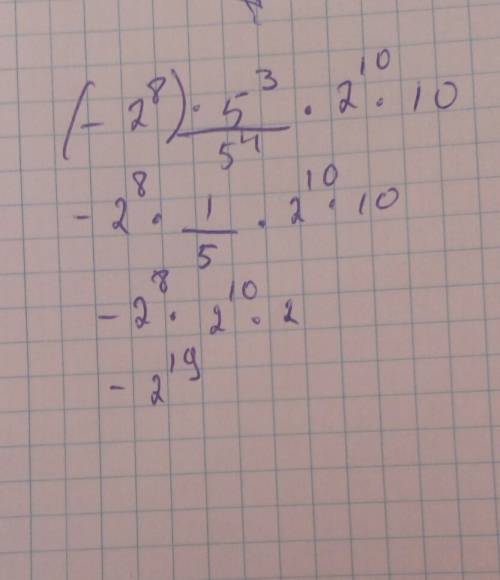 (- 2⁸) · 5³/5⁴ · 2¹⁰ · 10
- 2⁸ · 1/5 · 2¹⁰ · 10
- 2⁸ · 2¹⁰ · 2
- 2¹⁹